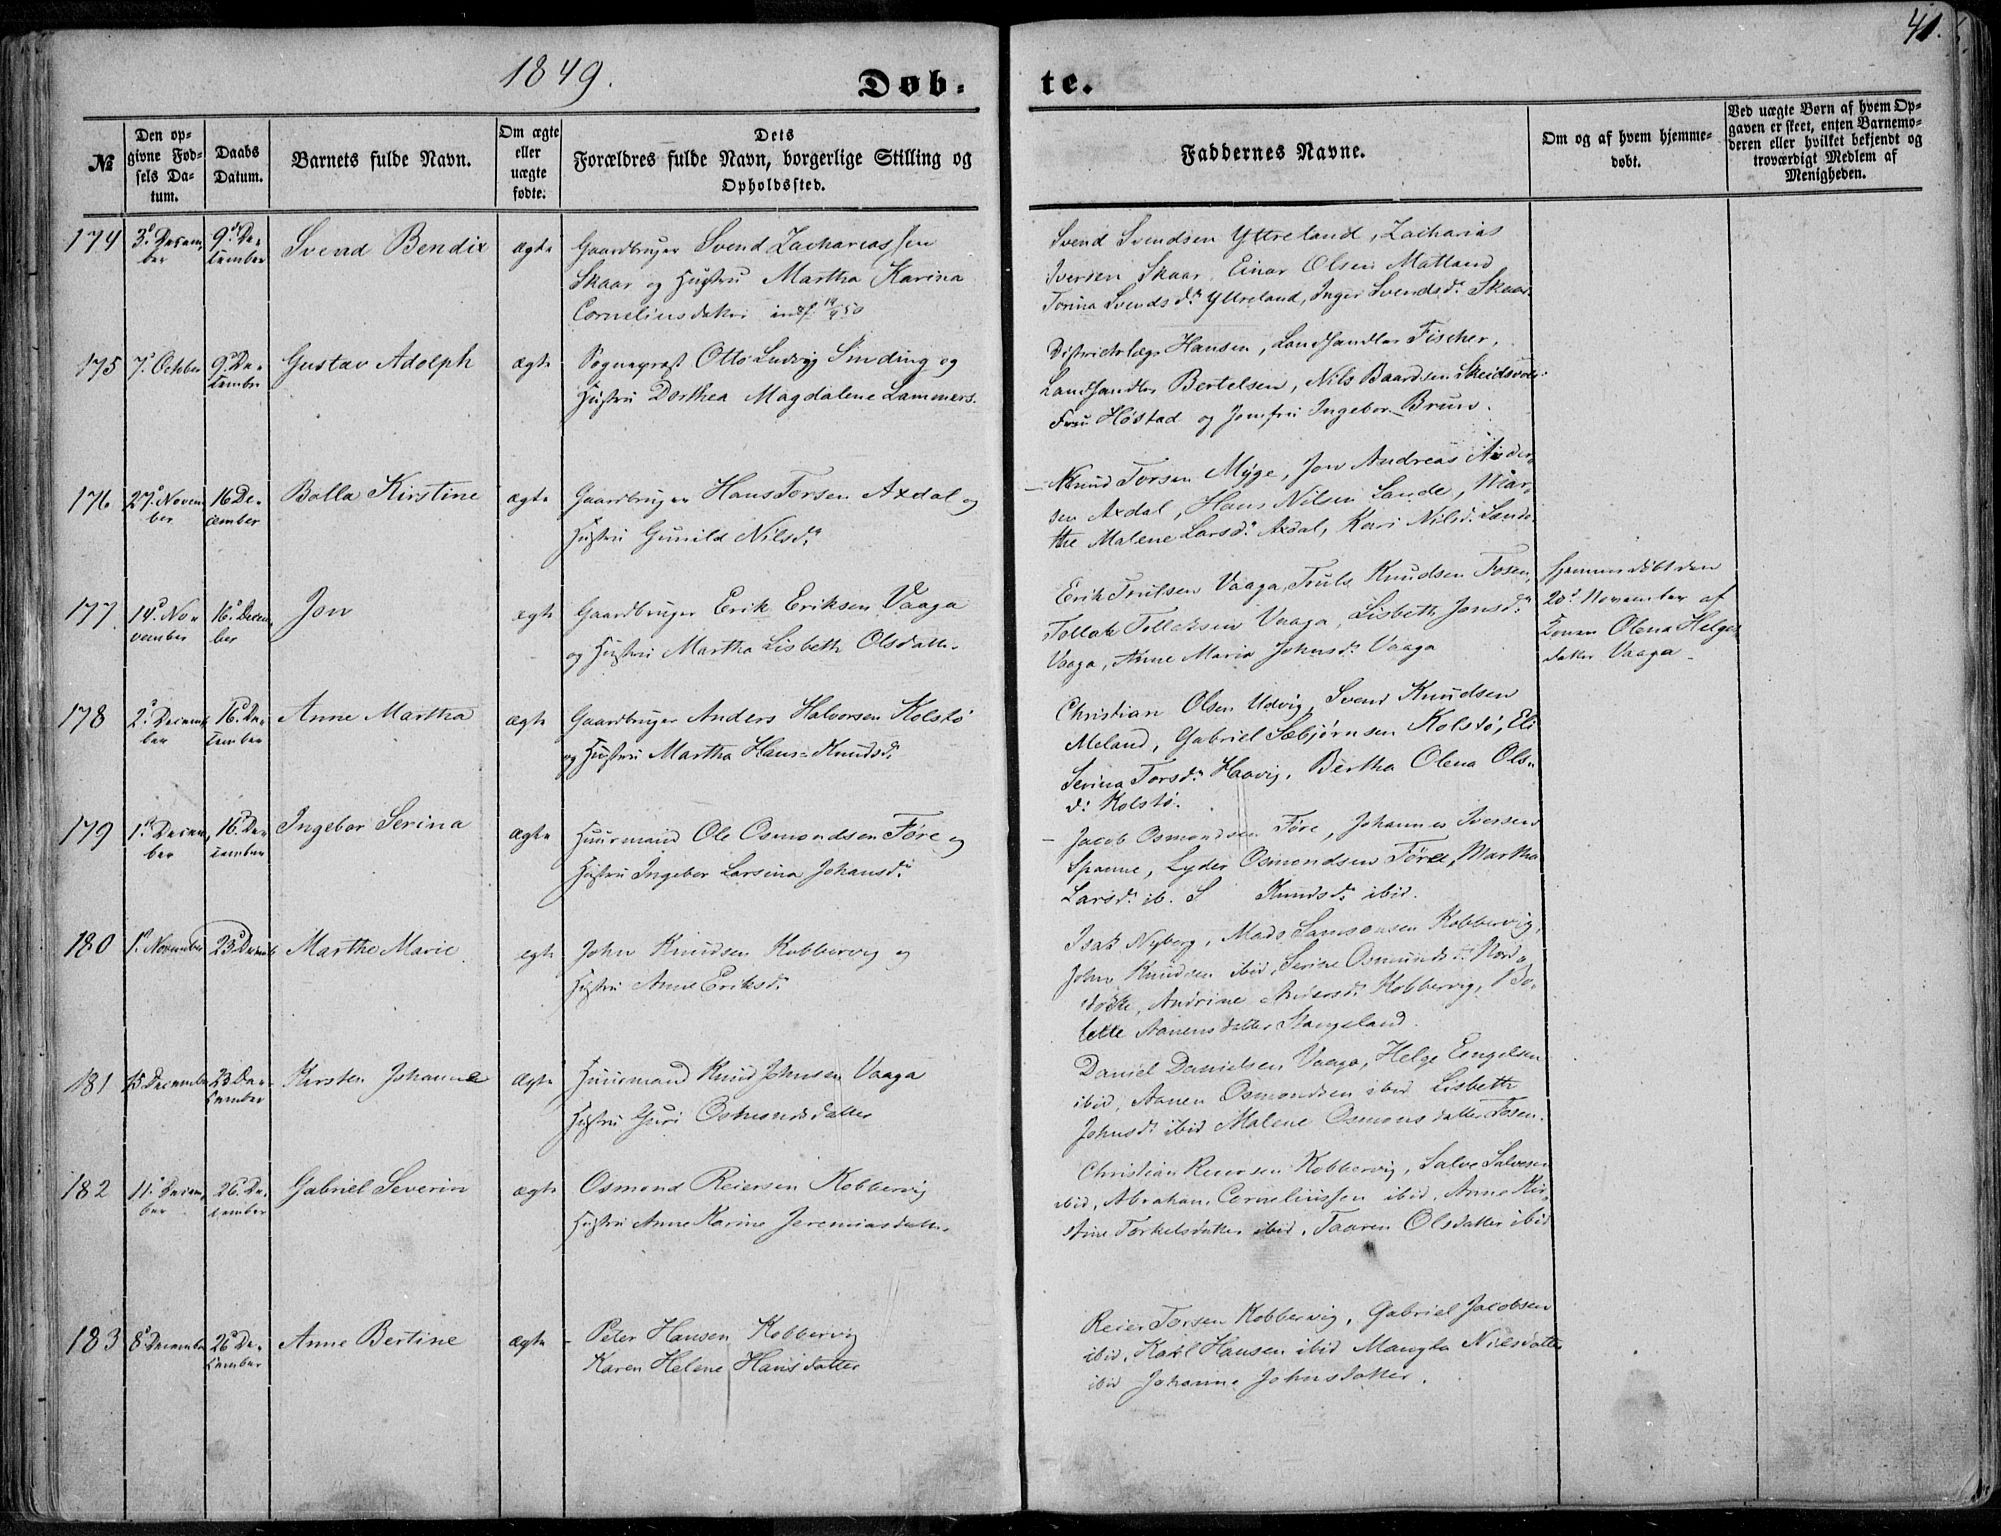 1849.
Døb-
te.
41.
№
Den op-
givne Fød-
sels Da-
tum.
Daabs
Datum.
Barnets fulde Navn.
Om ægte
eller
uægte
fødte.
Dets
Forældres fulde Navn, borgerlige Stilling og
Opholdssted.
Faddernes Navne.
Om og af hvem hjemme-
døbt.
Ved uægte Børn af hvem Op-
gaven er skeet, enten Barnemo-
deren eller hvilket bekjendt og
troværdigt Medlem af
Menigheden.
174 3. Decem 9. De- Svend Bendix ægte Gaardbruger Svend Zachariassen
ber cember Skaar og Hustru Martha Karina
Corneliusdatter
Svend Svendsen Yttreland, Zacharias
Iversen Skaar, Einar Olsen Matland
Torina Svendsd. Yttreland, Inger Svendsd. Skaar.
175 7. Octber 9. De- Gustav Adolph ægte Sognepræst Otto Ludvig Sinding og
cember Hustru Dorthea Magdalene Lammers.
Districtslæge Hansen, Landhandler Fischer,
Landhandler Bertelsen, Nils Baardsen
Fru Høstad og Jomfru Ingebor Bruun.
176 27. Novem 16 De- Bolla Kirstine ægte Gaardbruger Hans Torsen Axdal og
ber cember Hustru Gunild Nilsd.
Knud Torsen Myge, Jon Andreas Ander-
sen Axdal, Hans Nilsen Sande, Mar-
the Malene Larsd. Axdal, Kari Nilsd. Sande
177 14. No- 16. Decem Jon ægte Gaardbruger Erik Eriksen Vaaga
vember ber og Hustru Martha Lisbeth Olsdatter
Erik Troulsen Vaaga, Truls Knudsen Fosen,
Tollak Tollaksen Vaaga, Lisbeth Jonsd.
Vaaga, Anne Maria Johnsd. Vaaga
hjemmedøbt den
20. November af
Konen Olena Helge-
datter Vaaga
178 2. Decem 16. De- Anne Martha ægte Gaardbruger Anders Halvorsen Kolstø
ber cember og Hustru Martha Hans-Knudsd.
Christian Olsen Udvig, Svend Knudsen
Meland, Gabriel Sæbjørnsen Kolstø, Eli
Serina Torsd. Haavig, Bertha Olena Ols-
d. Kolstø.
179 1. Decem 16. De- Ingebor Serina ægte Huusmand Ole Osmondsen Føre og
ber cember Hustru Ingebor Larsina Johansd.
Jacob Osmondsen Føre, Johannes Iversen
Spanne, Lyder Osmondsen Føre, Martha
Larsd. ib. S Knudsd. ibid.
180 1. November 23. Decemb Marthe Marie ægte John Knudsen Kobbervig og
Hustru Anne Eriksd.
Isak Nyberg, Mads Samsonsen Kobbervig,
John Knudsen ibid, Serine Osmundsd. Nord
Andrine Kobbervig,
lette Aanensdatter Stangeland.
181 15 December 23 De- Kirsten Johanne ægte Huusmand Knud Johnsen Vaaga
cember Hustru Guri Osmondsdatter
Daniel Danielsen Vaaga, Helge Engelsen
ibid, Aanen Osmondsen ibid Lisbeth
Johnsd. ibid Malene Osmonsdatter Fosen.
182 11. Decem 26. De- Gabriel Severin ægte Osmond Reiersen Kobbervig
ber cember Hustru Anne Karine Jeremiasdatter
Christian Reiersen Kobbervig, Salve Salvesen
ibid, Abraham Corneliussen ibid, Anne Kir-
stine Torkelsdatter ibid, Taaren Olsdatter ibid
183 8. December 26 De- Anne Bertine ægte Peter Hansen Kobbervig
cember Karen Helene Hansdatter
Reier Torsen Kobbervig, Gabriel Jacobsen
ibid, Karl Hansen ibid Mangla Nielsdatter
ibid Johanne Johnsdatter.